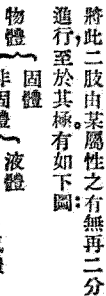 將此二肢由某屬性之有無再二分
進行至於其極。有如下圖：
固體
物體
液體
非固體